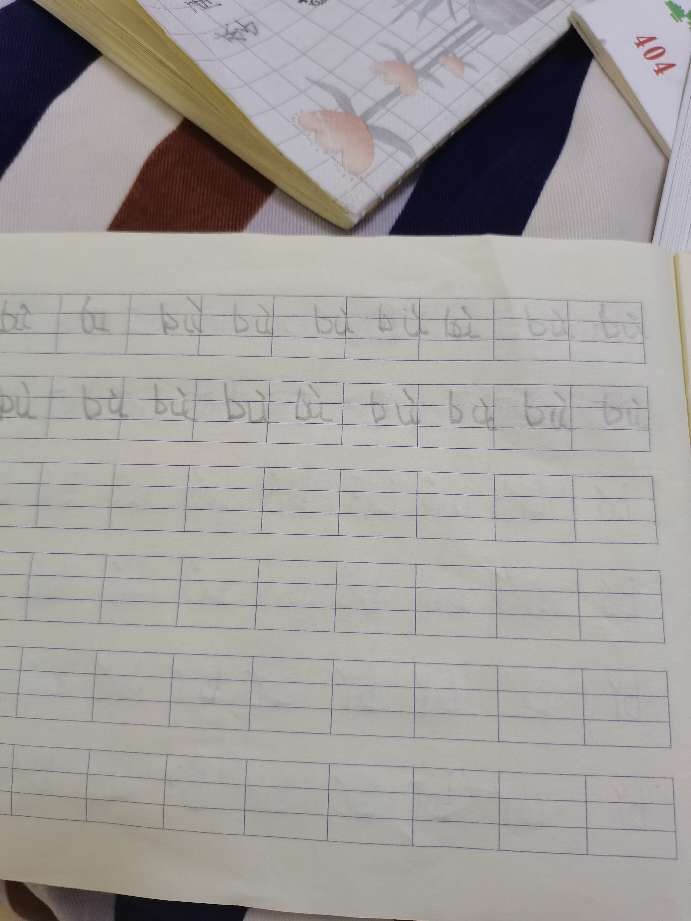 404
bù bu bù bù bù bù bù bù bù
bù bù bù bù bù bù bù bù bù